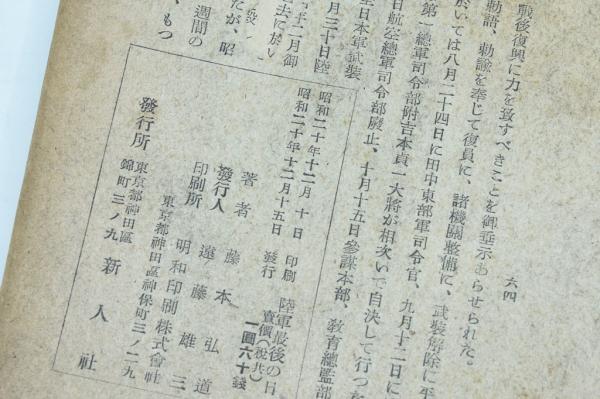 六四
戰後復興に力を致すべきことを御垂示あらせられた。
勅語、勅諭を奉じて復員に、諸機關整備に、武裝解除に平
於いては八月二十四日に田中東部軍司令官、九月十二日に
第一總軍司令部附吉本貞一大將が相次いで自決して行つた
日航空總軍司令部廢止、十月十五日參謀本部、教育總監部
月三十日陸
全日本軍武裝
年二月御
去に於い
たが、昭
週間の
、もつ
昭和二十年十二月十日 印刷
昭和二十年十二月十五日 發行
陸軍最後の日
賣價(稅共)
一圓六十錢
著者 藤本弘道
發行人 遠藤雄三
印刷所 明和印刷株式會社
東京都神田區神保町三ノ二九
發行所 東京都神田區錦町三ノ九 新人社